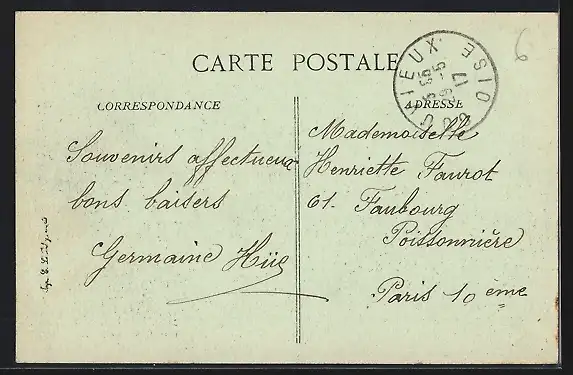 6
CARTE POSTALE
CORRESPONDANCE
ADRESSE
OISE
Souvenirs affectueux
bons baisers
Germaine Hüe
Mademoiselle
Henriette Faurot
61. Faubourg
Poissonnière
Paris 10 ème